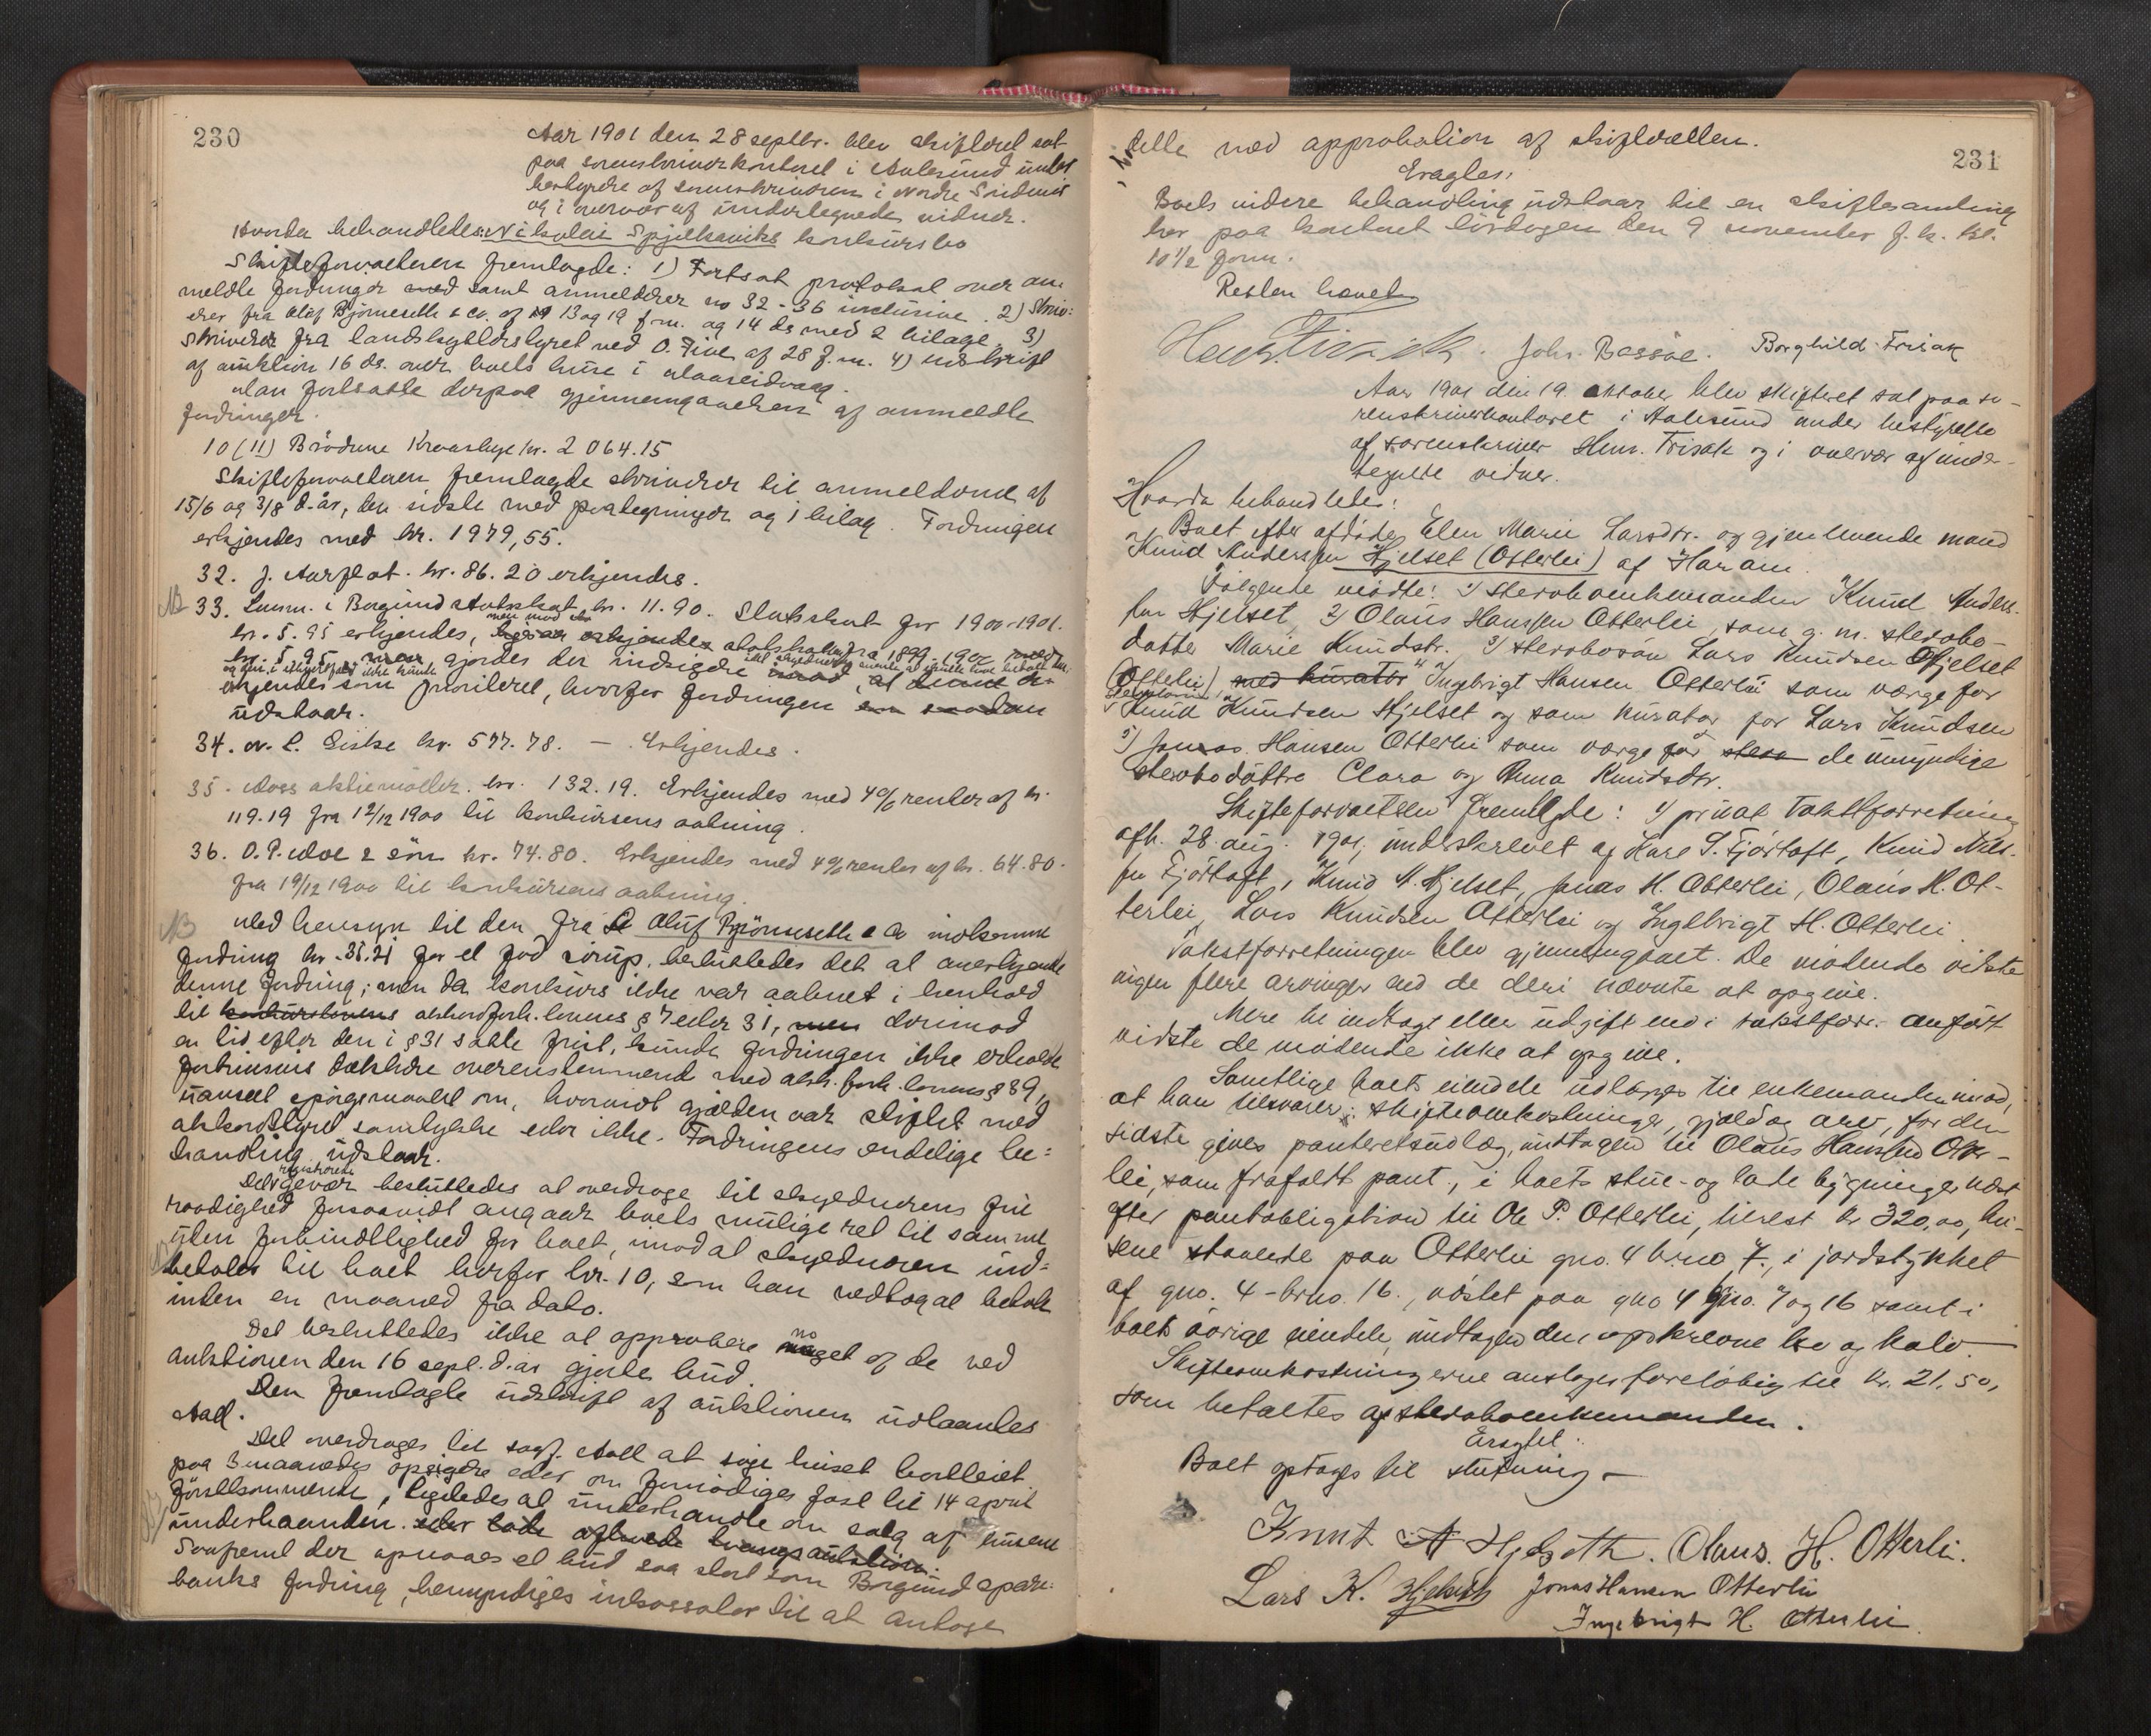 230
Aar 1901 den 28 septbr. blev skifteret sat
paa sorenskriverkontoret i Aalesund under
bestyrelse af sorenskriveren i Nordre Søndmør
og i overvær af undertegnede vidner.
Hvorda behandledes: Nikolai Spjelkaviks konkursbo
Skifteforvalteren fremlagde: 1) Fortsat protokol over an
meldte fordringer med samt anmeldelser no 32-36 inclusive. 2) Skriv:
elser fra Oluf Bjørneseth & Co. af 13 og 19 f.m. og 14 ds med 2 bilage. 3)
Skrivelse fra landskyldstyret ved O. Five af 28 f.m. 4) udskrift
af auktion 16 ds. over boets huse i
Man fortsatte derpaa gjennemgaaelsen af anmeldte
fordringer.
10 (11) Brødrene kr. 2 064.15
Skifteforvalteren fremlagde skrivelser til anmelderne af
15/6 og 3/8 d. år, den sidste med paategninger og 1 bilag. Fordringen
erkjendes med kr. 1979,55.
32. J. Aarflot. kr. 86.20 erkjendes.
NB 33. Lensm. i Borgund Statsskat kr. 11.90. Statsskat for 1900-1901.
kr. 5.95 erkjendes, men mod statsskatten fra 1899-1900 med
kr. 5.95 men gjordes der indsigelse
erkjendes som prioriteret, hvorfor fordringen en saadan
udstaar.
34. M. L. Giske kr. 577.78. — Erkjendes.
35. Moss aktiemøller. kr. 132.19. Erkjendes med 4% renter af kr.
119.19 fra 12/12 1900 til konkursens aabning.
36. O. P. Moe & søn kr. 74.80. Erkjendes med 4% renter af kr. 64.80.
fra 19/12 1900 til konkursens aabning.
NB Med hensyn til den fra Oluf Bjørneseth & Co indkomne
fordring kr. 35.21 for et fad sirup, besluttedes det at anerkjende
denne fordring; men da konkurs ikke var aabnet i henhold
til konkurslovens akkordforh. lovens § 7 eller 31, men derimod
en tid efter den i § 31 satte frist, kunde fordringen ikke erholde
fortrinsvis dækkelse overensstemmende med akk. forh. lovens § 39,
uanseet spørgsmaalet om, hvorvidt gjælden var stiftet med
akkordstyrets samtykke eller ikke. Fordringens endelige be=
handling udstaar.
registrerede
Det gevær besluttedes at overdrage til skyldnerens frie
raadighed forsaavidt angaar boets mulige ret til samme
uden forbindtlighed for boet, imod at skyldneren ind=
betaler til boet herfor kr. 10, som han vedtog at betale
inden en maaned fra dato.
Det besluttedes ikke at approbere noget af de ved
auktionen den 16 sept. d. år gjorte bud.
Den fremlagte udskrift af auktionen udlaantes
Aall.
Det overdrages til sagf. Aall at søge huset bortleiet
paa 3 maaneders opsigelse eller om fornødiges fast til 14 april
førstkommende, ligeledes at underhandle om salg af husene
underhaanden. eller lade afholde tvangsauktion.
Saafremt der opnaaes et bud saa stort som Borgund spare:
banks fordring, bemyndiges inkassator til at antage
231
dette med approbation af skifteretten.
Eragtet:
Boets videre behandling udstaar til en skiftesamling
her paa kontoret lørdagen den 9 november f. k. kl.
10 1/2 form.
Retten hævet
Henr. Frisak. Johs. Bassøe. Borghild Frisak
Aar 1901 den 19. oktober blev skifteret sat paa so-
renskriverkontoret i Aalesund under bestyrelse
af sorenskriver Henr. Frisak og i overvær af under-
tegnede vidner.
Hvorda behandledes:
Boet efter afdøde Elen Marie Larsdtr. og gjenlevende mand
Knud Anderssen Hjelset (Otterlei) af Haram.
Følgende mødte: 1) Sterboenkemanden Knud Anders-
sen Hjelset, 2) Olaus Hanssen Otterlei, som g. m. sterbo-
datter Marie Knudsdtr. 3) sterbosøn Lars Knudsen Hjelset
(Otterlei) med kurator 4) Ingebrigt Hansen Otterlei som værge for
Knud Knudsen Hjelset og som kurator for Lars Knudsen
5) Jonas Hansen Otterlei som værge for stera de umyndige
sterbodøttre Clara og Anna Knudsdtr.
Skifteforvalteren fremlagde: 1) privat Takstforretning
afh. 28. aug. 1901, underskrevet af Kare P. Fjørtoft, Knud Nils-
sen Fjørtoft, Knud A. Hjelset, Jonas H. Otterlei, Olaus H. Ot-
terlei, Lars Knudsen Otterlei og Ingebrigt H. Otterlei.
Takstforretningen blev gjennemgaaet. De mødende vidste
ingen flere arvinger end de deri nævnte at opgive.
Mere til indtægt eller udgift end i takstforr. anført
vidste de mødende ikke at opgive.
Samtlige boets eiendele udlægges til enkemanden imod,
at han tilsvarer: skifteomkostninger, gjæld og arv, for den
sidste gives panteretsudlæg, undtagen til Olaus Hanssen Otter-
lei, som frafaldt pant, i boets stue- og lade bygninger næst
efter pantobligation til Ole P. Otterlei, tilrest kr 320,00, hu-
sene staaende paa Otterlei gno. 4 brno 7, i jordstykket
af gno. 4 - brno. 16., nøstet paa gno 4 bno. 7 og 16 samt i
boets øvrige eiendele, undtagen den opskrevne ko og kalv.
Skifteomkostningerne anslages foreløbig til kr. 21,50,
som betaltes af sterboenkemanden.
Eragtet:
Boet optages til slutning —
Knut A Hjelseth. Olaus. H. Otterlei.
Lars K. Hjelseth Jonas Hansen Otterlei
Ingebrigt H. Otterlei